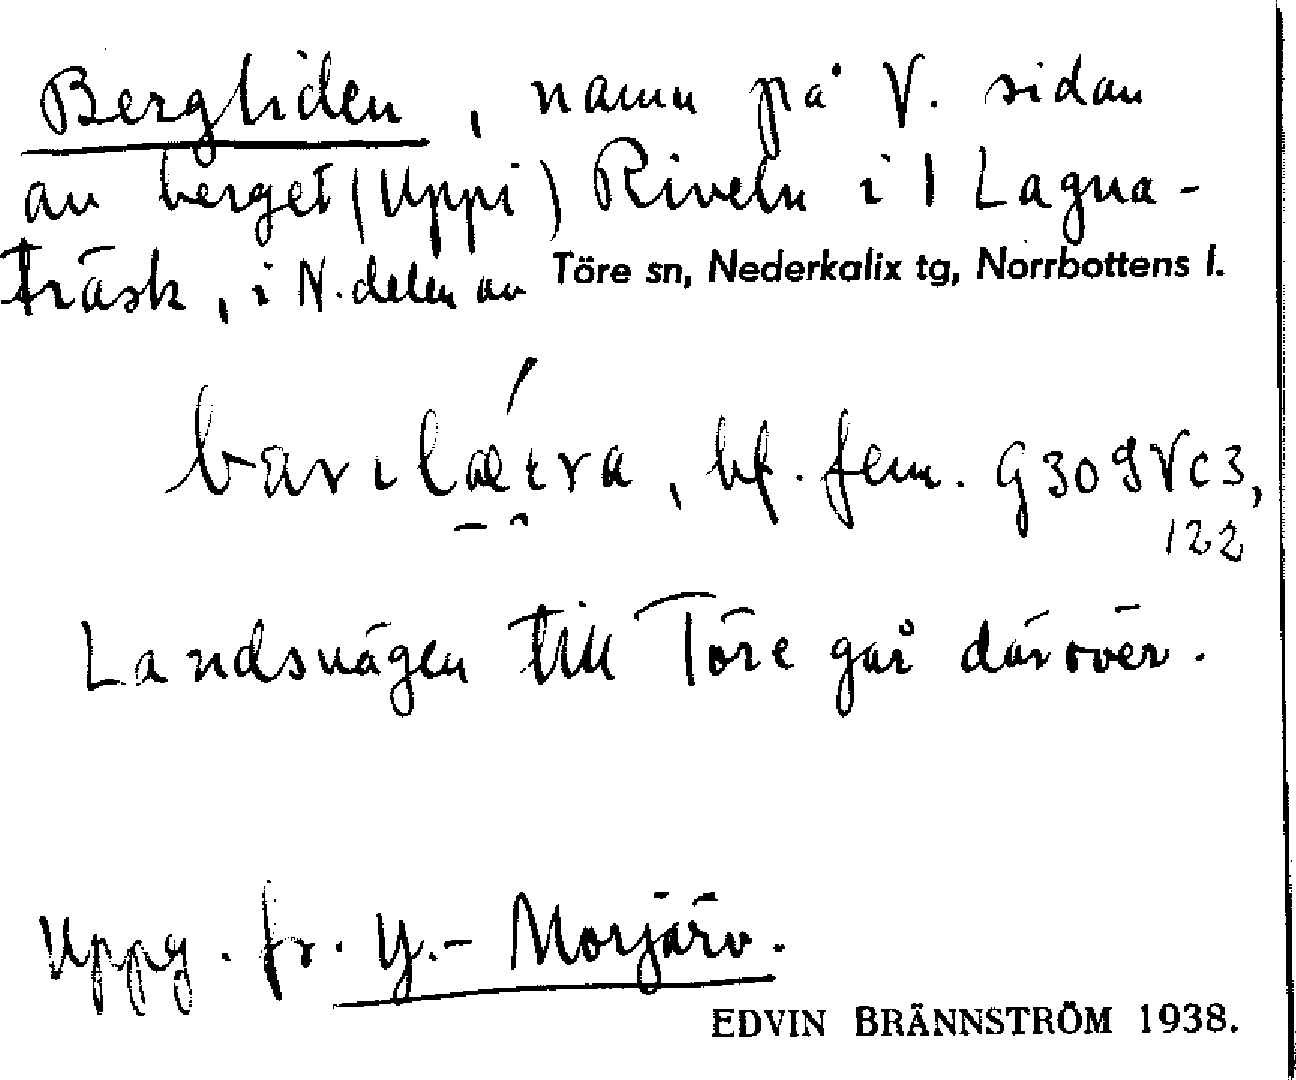 Bergliden, namn på V. sidan
av berget (Uppi) Riveln i l Lagna-
träsk, i N. delen av Töre sn, Nederkalix tg, Norrbottens l.
bf. fem. G309VC3,
122
Landsvägen till Töre går däröver.
Uppg. fr. Y.- Morjärv.
EDVIN BRÄNNSTRÖM 1938.